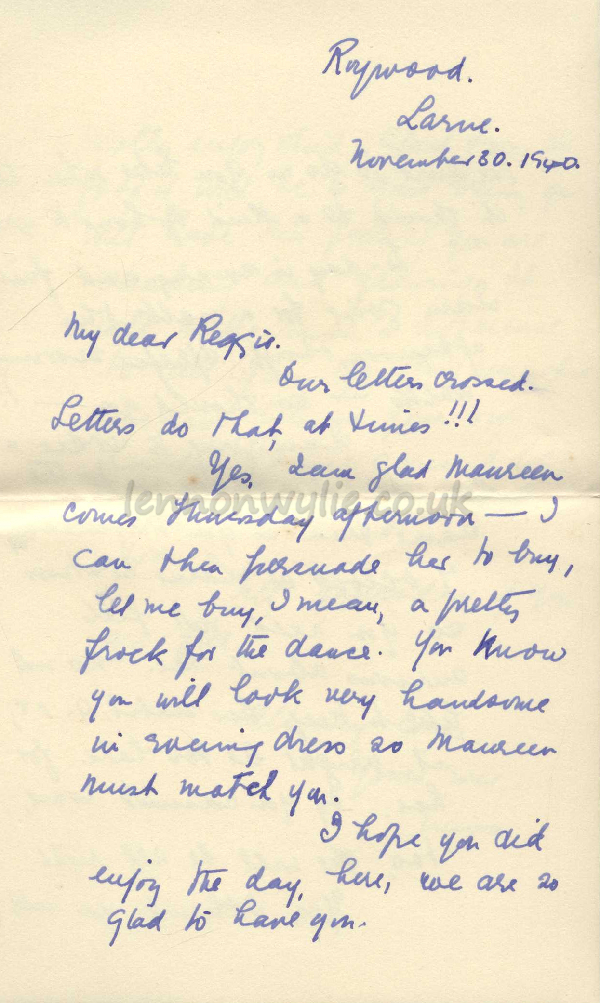 Roywood.
Larne.
November 30. 1940.
My dear Reggie.
Our letters crossed.
Letters do that, at times!!!
Yes, I am glad Maureen
lennonwylie.co.uk
comes Thursday afternoon — I
can then persuade her to buy,
let me buy, I mean, a pretty
frock for the dance. You know
you will look very handsome
in evening dress so Maureen
must match you.
I hope you did
enjoy the day, here, we are so
glad to have you.